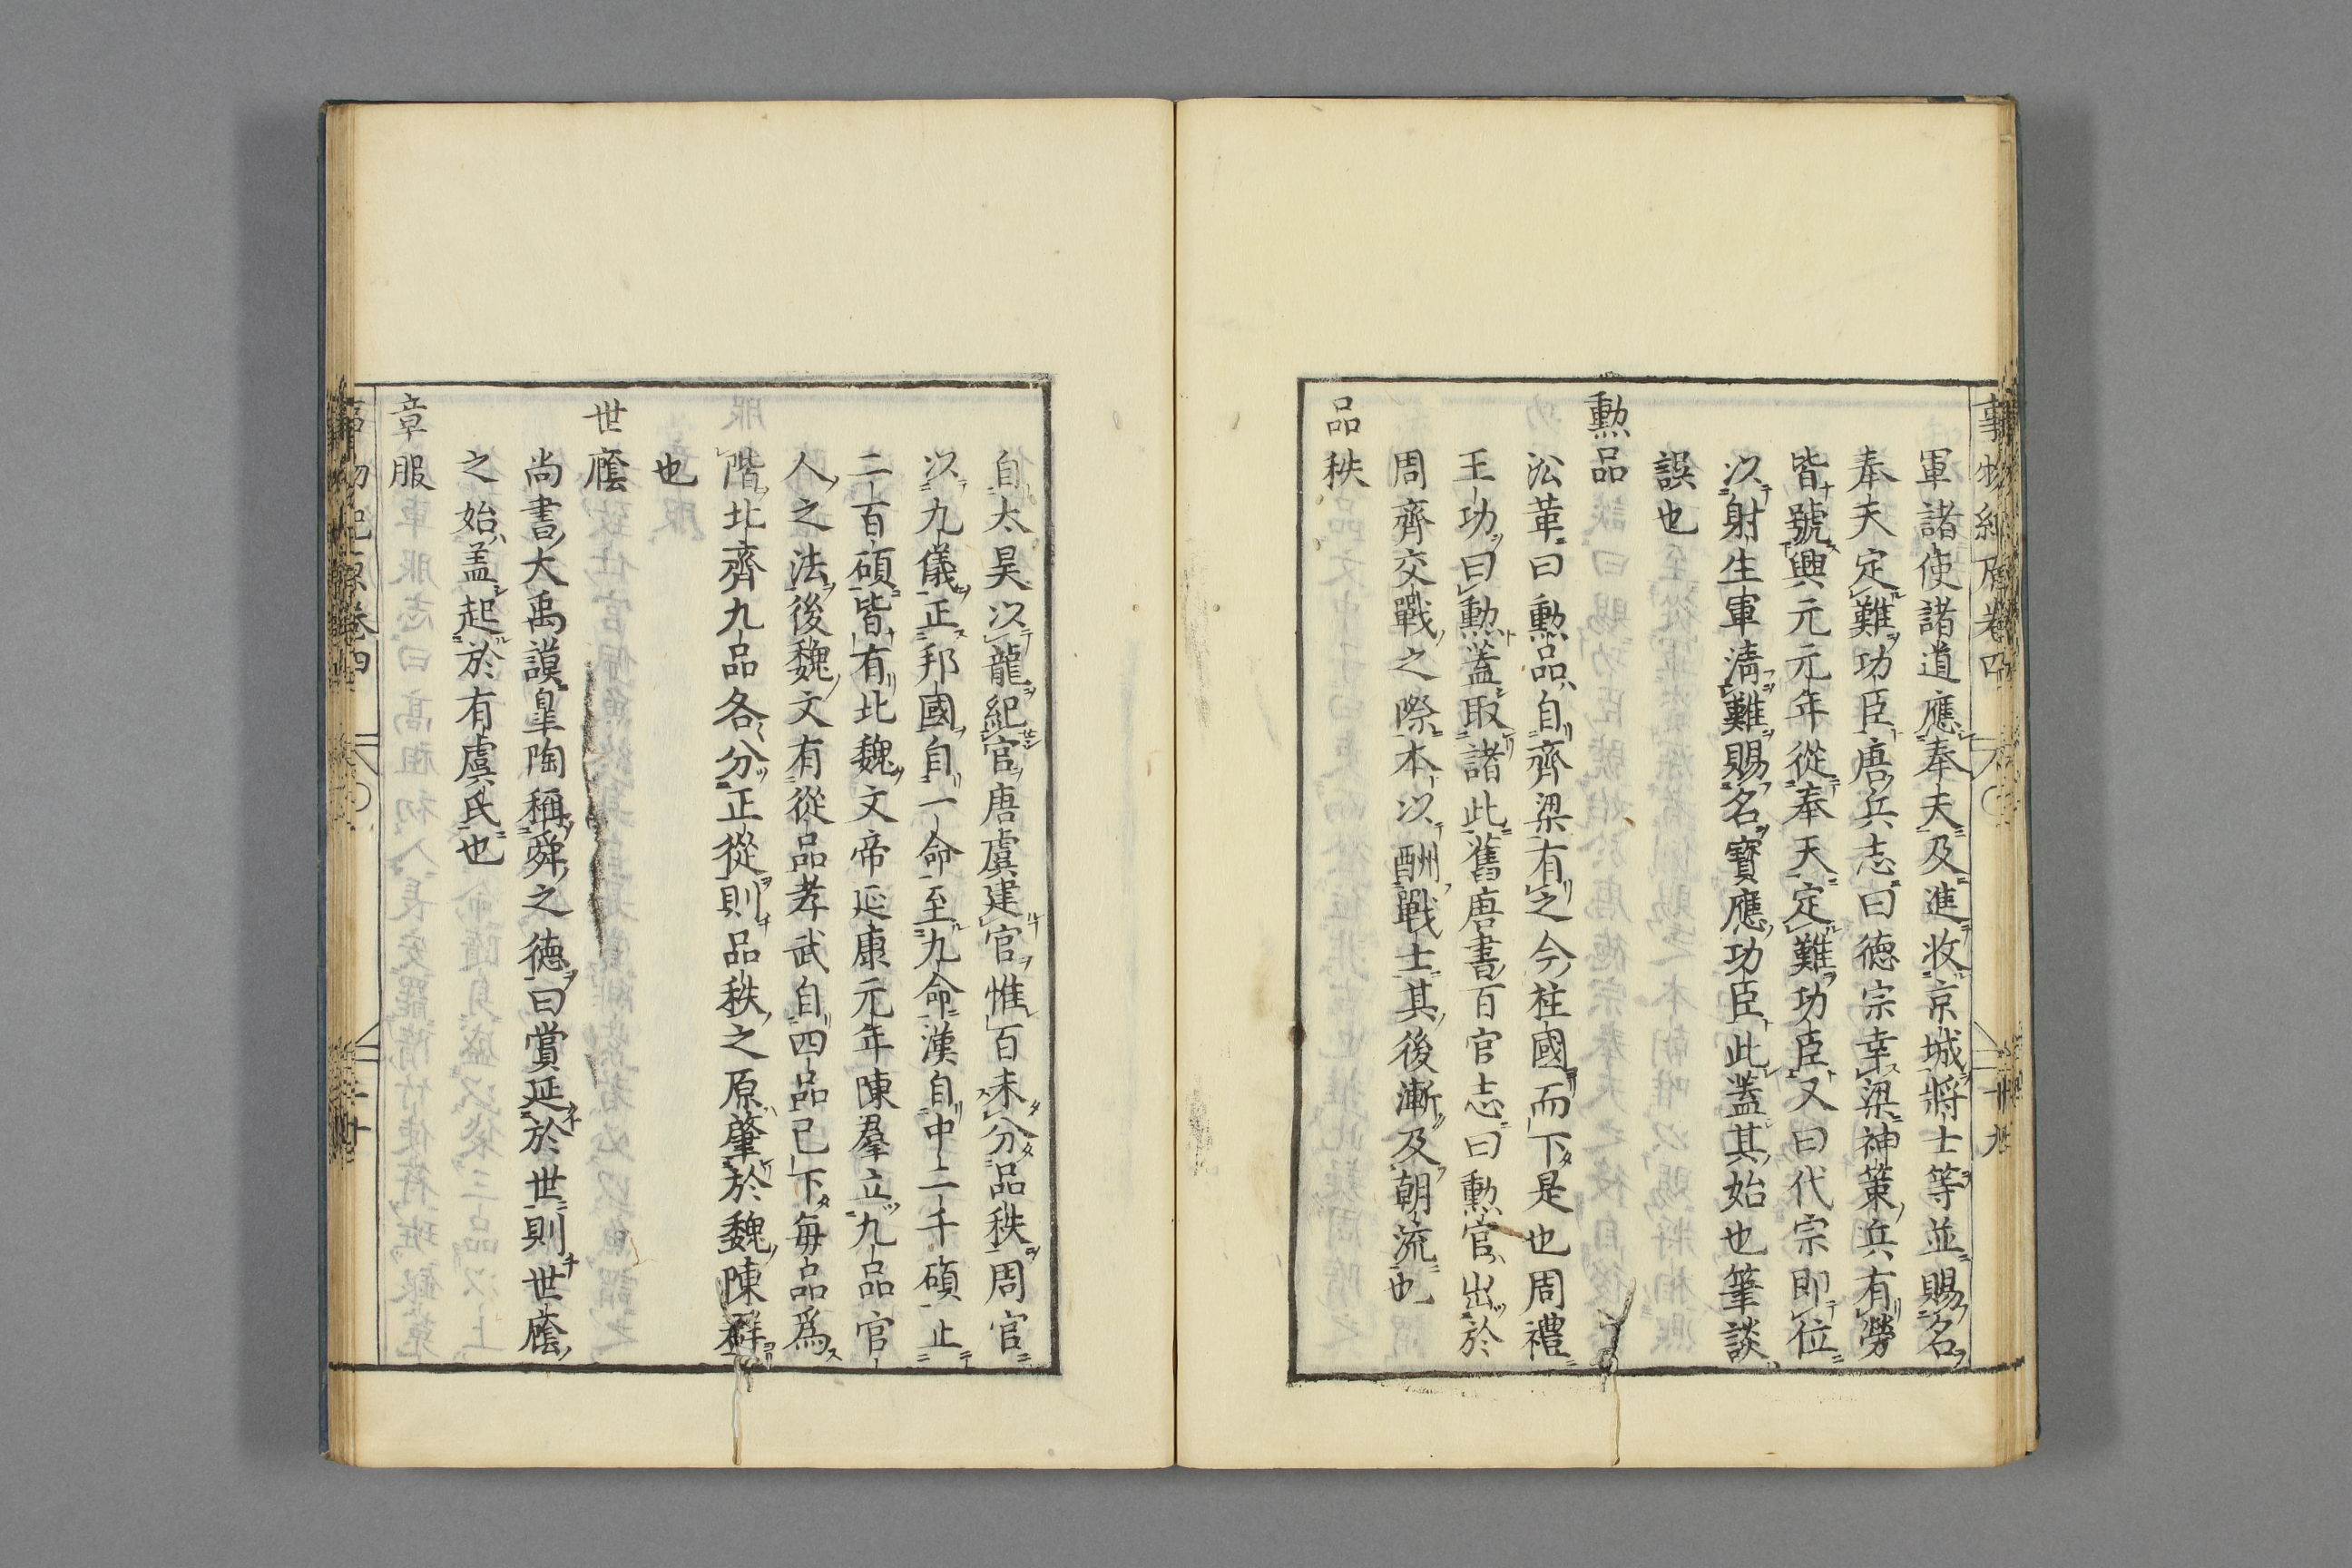 軍諸使諸道應奉天及進收京城將士等並賜名
奉天定難功臣唐兵志曰德宗幸梁神策兵有勞
皆號興元元年從奉天定難功臣又曰代宗即位
以射生軍清難賜名寶應功臣此蓋其始也筆談
誤也
勲品
沿革曰勲品自齊梁有之今柱國而下是也周禮
王功曰勲蓋取諸此舊唐書百官志曰勲官出於
周齊交戰之際本以酬戰士其後漸及朝流也
品秩
自太昊以龍紀官唐虞建官惟百未分品秩周官
以九儀正邦國自一命至九命漢自中二千碩止
二百碩皆有北魏文帝延康元年陳羣立九品官
人之法後魏文有從品孝武自四品已下每品爲
階北齊九品各分正從則品秩之原肇於魏陳羣
也
世廕
尚書大禹謨皐陶稱舜之德曰賞延於世則世廕
之始盖起於有虞氏也
章服